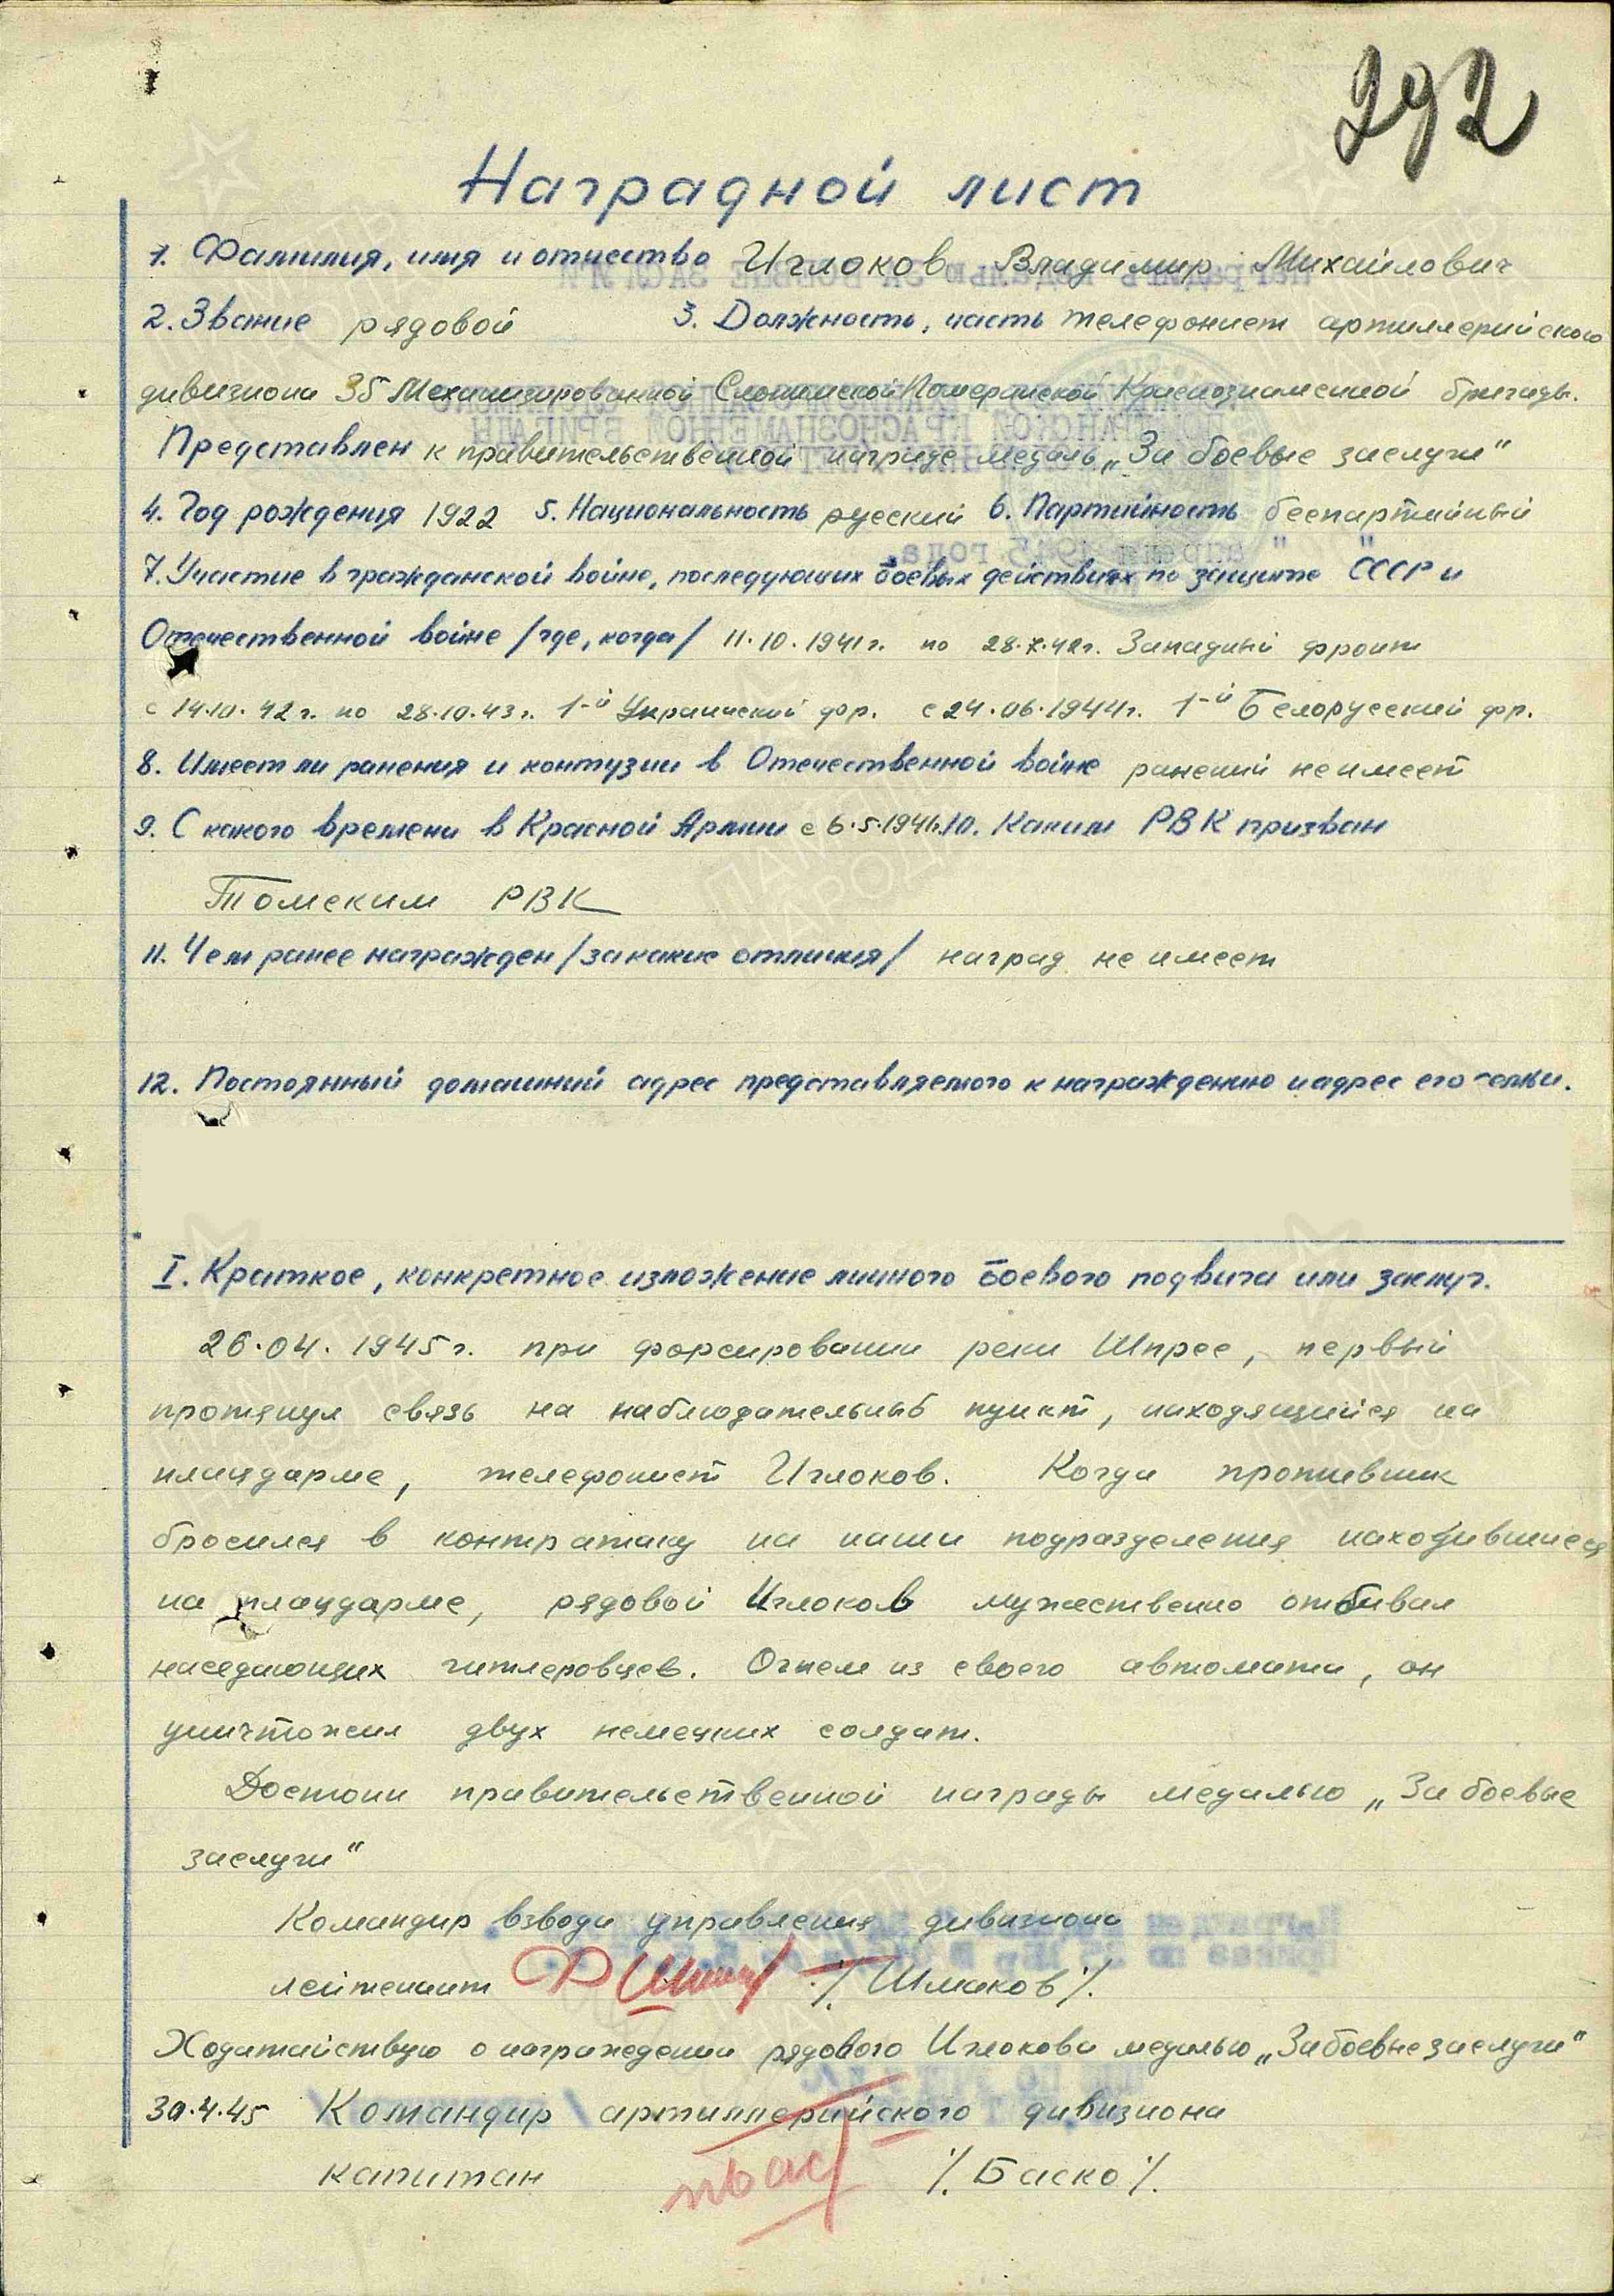 292
Наградной лист
1. Фамилия, имя и отчество Иглоков Владимир Михайлович
2. Звание рядовой 3. Должность, часть телефонист артиллерийского
дивизиона 35 Механизированной Слонимской Померанской Краснознаменной бригады.
Представлен к правительственной награде медаль „За боевые заслуги"
4. Год рождения 1922 5. Национальность русский 6. Партийность беспартийный
7. Участие в гражданской войне, последующих боевых действиях по защите СССР и
Отечественной войне /где, когда/ 11.10.1941г. по 28.X.42г. Западный фронт
с 14.10.42г. по 28.10.43г. 1-й Украинский фр. с 24.06.1944г. 1-й Белорусский фр.
8. Имеет ли ранения и контузии в Отечественной войне ранений не имеет
9. С какого времени в Красной Армии с 6.5.1941г. 10. Каким РВК призван
Томским РВК
11. Чем ранее награжден /за какие отличия/ наград не имеет
12. Постоянный домашний адрес представляемого к награждению и адрес его семьи.
I. Краткое, конкретное изложение личного боевого подвига или заслуг.
26.04.1945г. при форсировании реки Шпрее, первый
протянул связь на наблюдательный пункт, находящийся на
плацдарме, телефонист Иглоков. Когда противник
бросился в контратаку на наши подразделения находившиеся
на плацдарме, рядовой Иглоков мужественно отбивал
наседающих гитлеровцев. Огнем из своего автомата, он
уничтожил двух немецких солдат.
Достоин правительственной награды медалью „За боевые
заслуги"
Командир взвода управления дивизиона
лейтенант /Шмаков/.
Ходатайствую о награждении рядового Иглокова медалью „За боевые заслуги"
30.4.45 Командир артиллерийского дивизиона
капитан /Баско/.